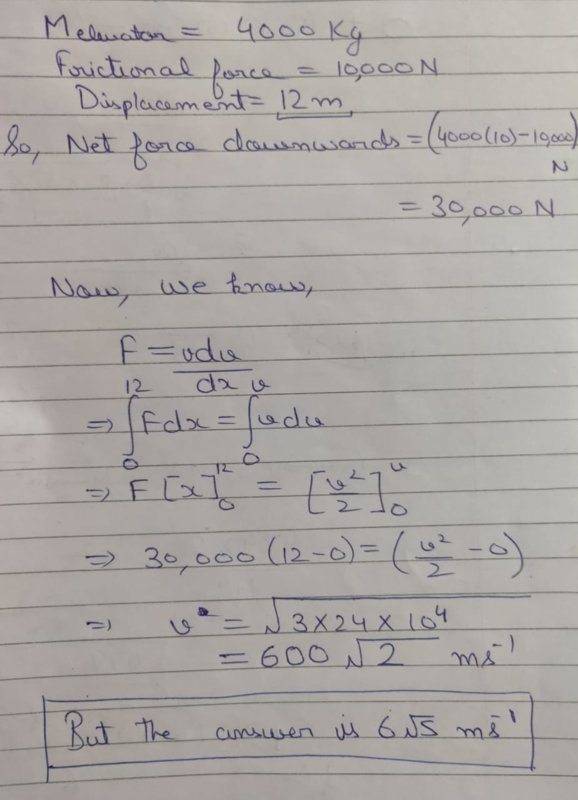 Melevator = 4000 Kg
Frictional force = 10,000N
Displacement = 12 m
So, Net force downwards = (4000(10)-10,000) N
= 30,000 N
Now, we know,
F = vdv/dx
⇒ ∫₀¹² Fdx = ∫₀ᵛ vdv
⇒ F [x]₀¹² = [v²/2]₀ᵛ
⇒ 30,000 (12-0) = (v²/2 - 0)
⇒ v = √(3×24×10⁴)
= 600 √2 ms⁻¹
But the answer is 6√5 ms⁻¹